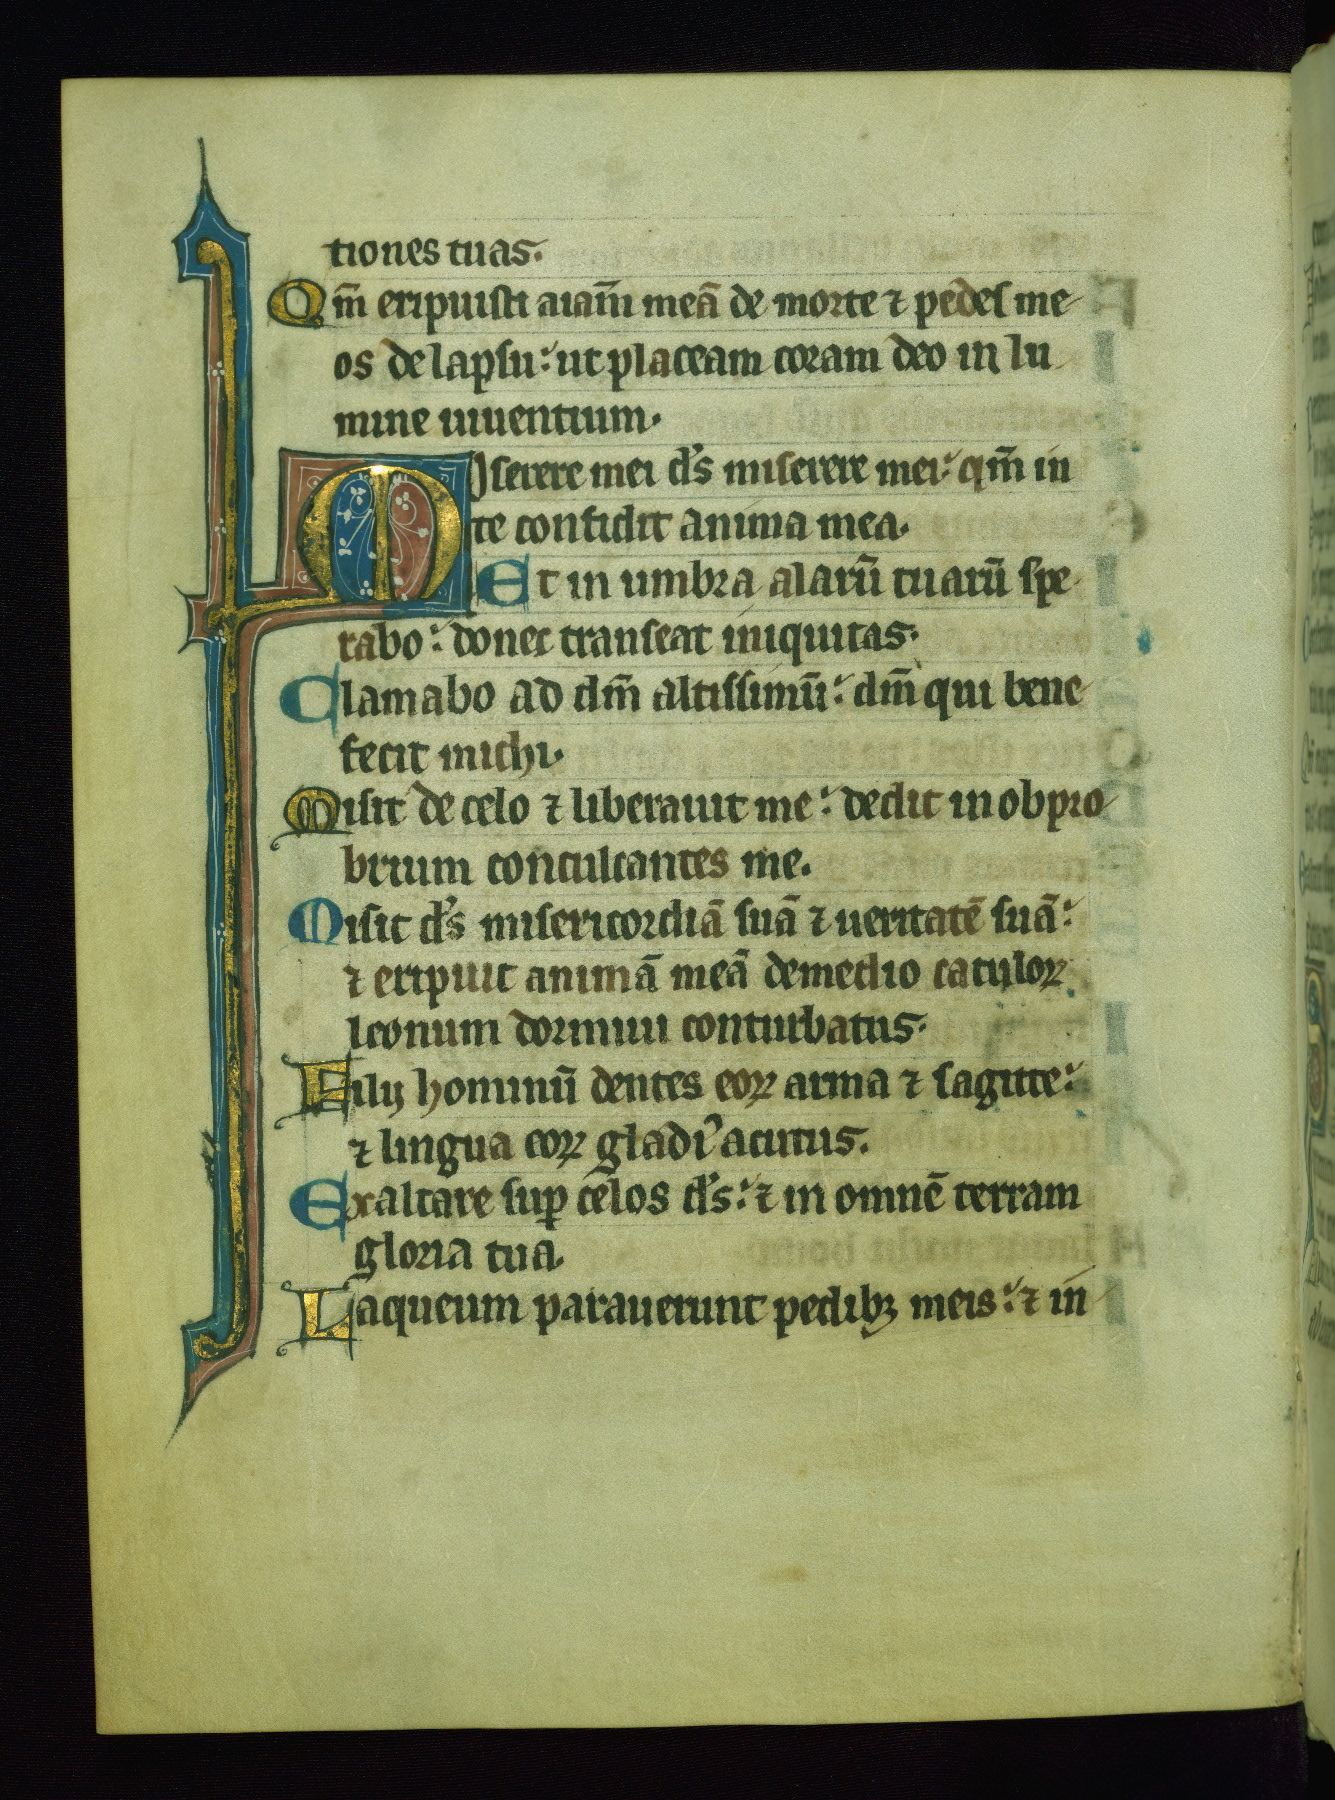 tiones tuas.
Qm̄ eripuisti aiam̄ meā de morte ⁊ pedes me
os de lapsu: ut placeam coram deo in lu
mine uiuentium.
Miserere mei ds̄ miserere mei: qm̄ in
te confidit anima mea.
Et in umbra alarū tuarū spe
rabo: donec transeat iniquitas.
Clamabo ad dm̄ altissimū: dm̄ qui bene
fecit michi.
Misit de celo ⁊ liberauit me: dedit in obpro
brium conculcantes me.
Misit ds̄ misericordiā suā ⁊ ueritatē suā:
⁊ eripuit animā meā de medio catuloꝝ
leonum dormiui conturbatus.
Filij hominū dentes eoꝝ arma ⁊ sagitte:
⁊ lingua eoꝝ gladiꝰ acutus.
Exaltare suꝑ celos ds̄: ⁊ in omnē terram
gloria tua.
Laqueum parauerunt pedibꝫ meis: ⁊ in